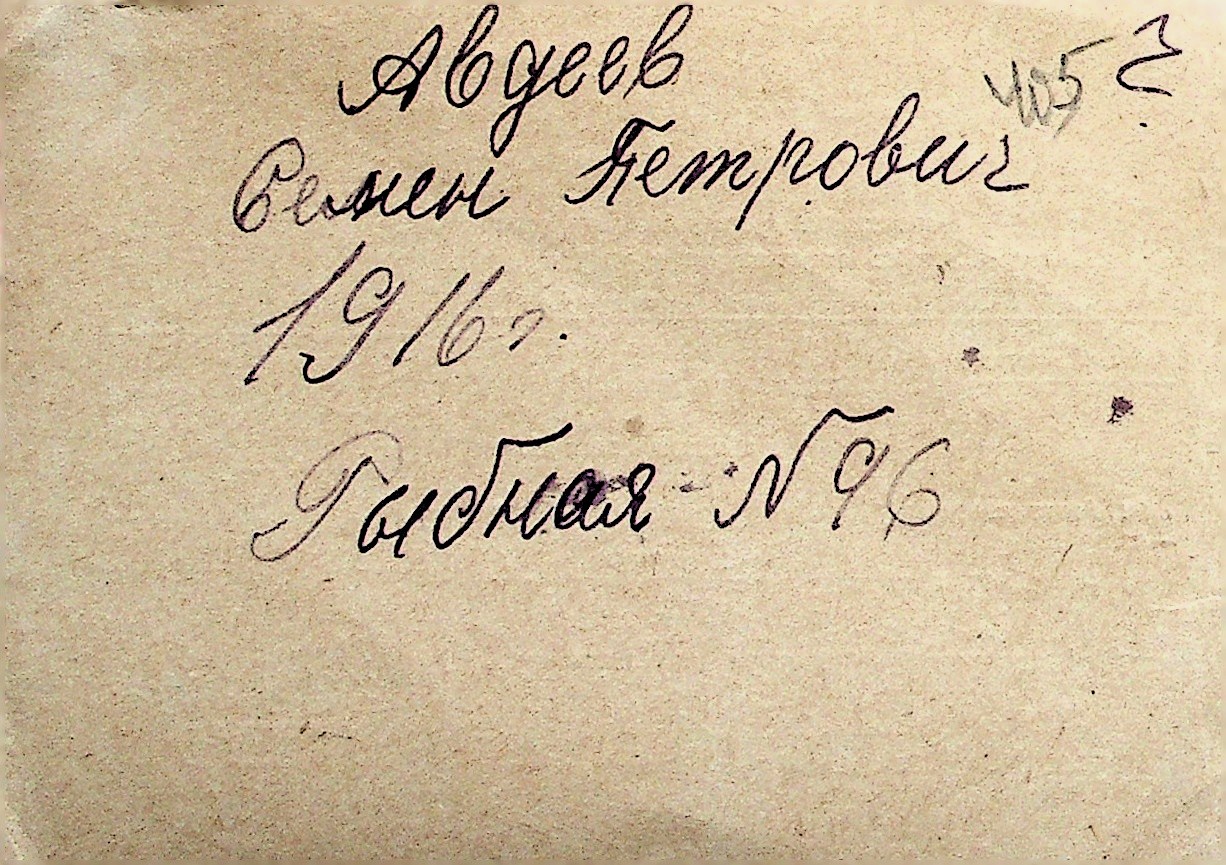 Авдеев
405
Семен Петрович
1916 г.
Рыбная - N 96